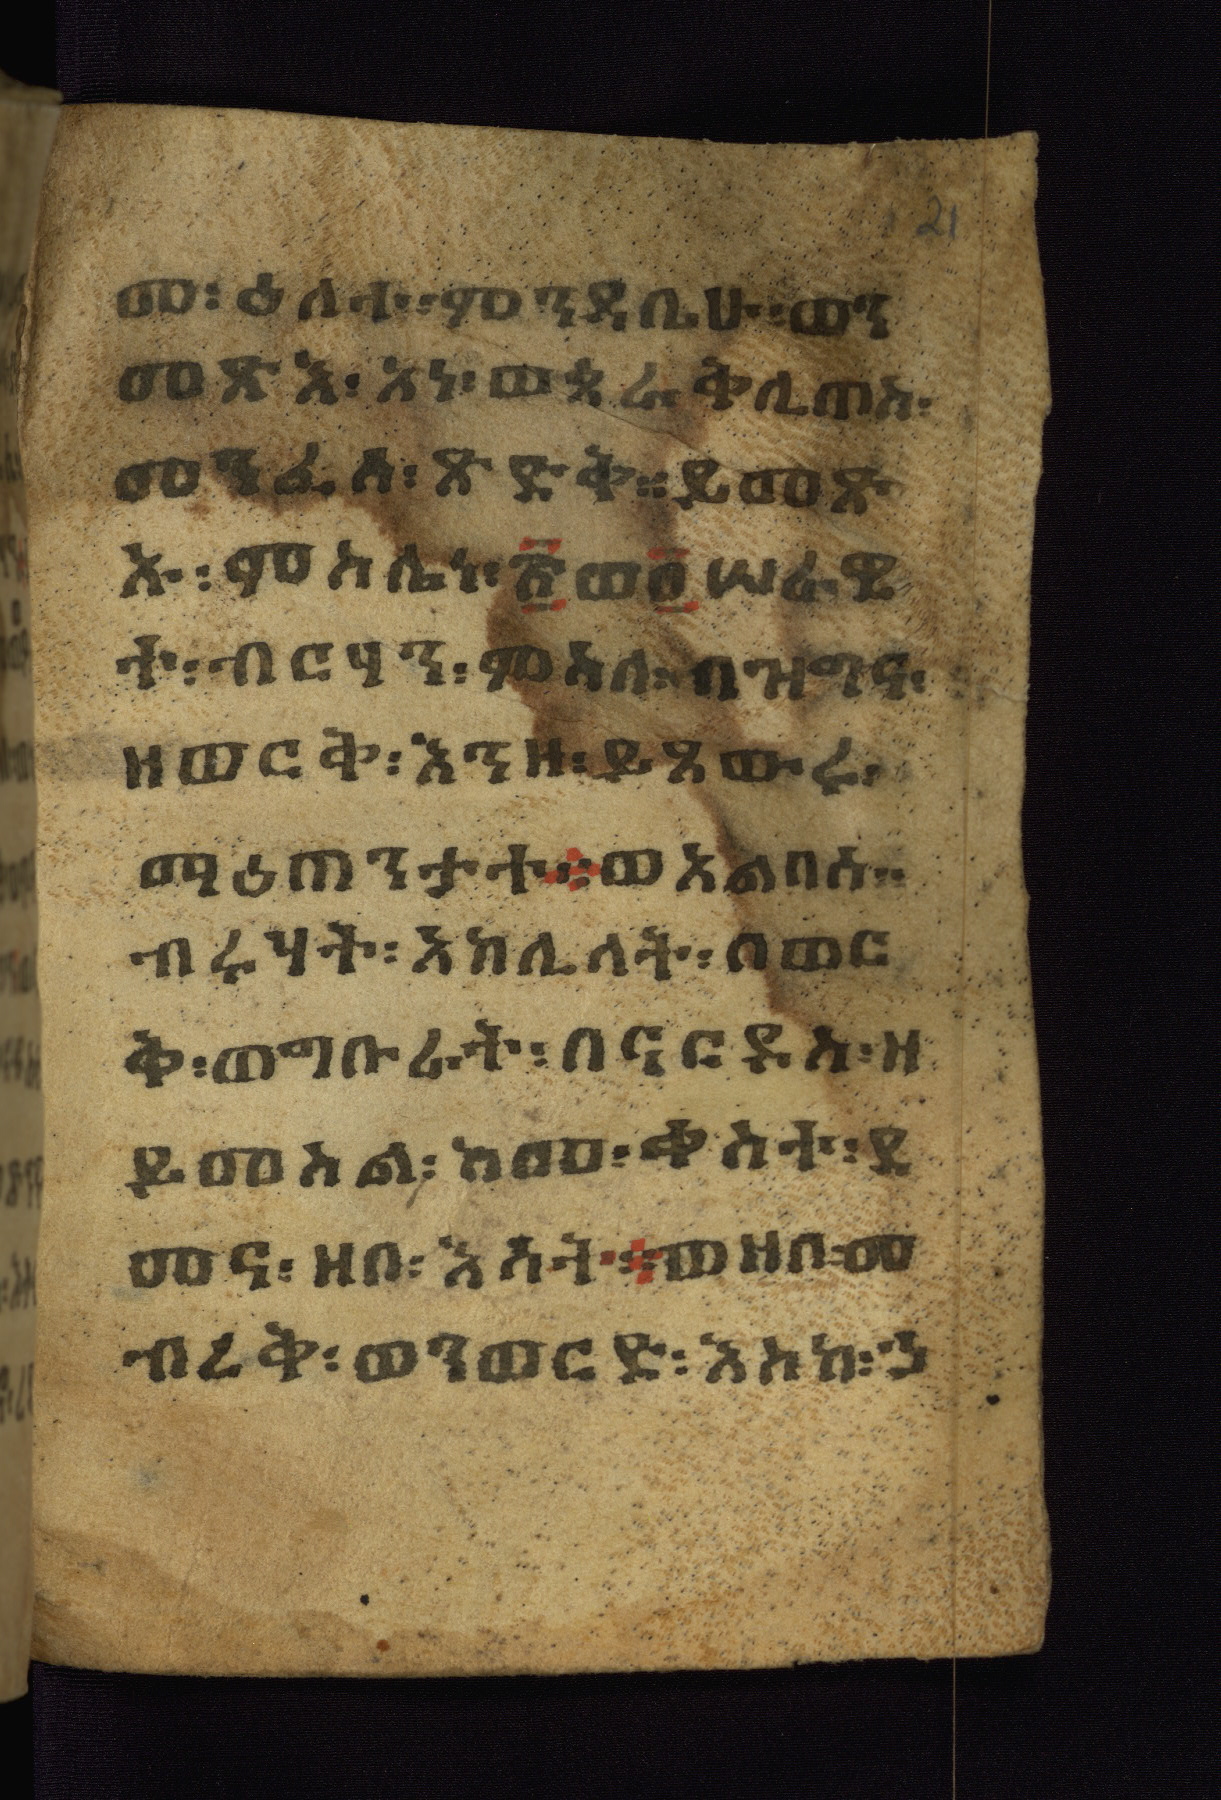 21
መ፡ ዕለተ፡ ምንዳቤሁ፡ ወን
መጽአ፡ እኑ፡ ወቷራቅሊጠስ፡
መንፈሰ፡ ጽድቅ። ይመጽ
እ፡ ምስሌኑ፡ ፳ወ፬ ሠራዊ
ተ፡ ብርሃን፡ ምስለ፡ በዝማና፡
ዘወርቅ፡ እንዘ፡ ይጸውሩ፡
ማዕጠንታተ። ወአልበሰ።
ብሩሃት፡ አክሊላት፡ በወር
ቅ፡ ወግቡራት፡ በናርዶስ፡ ዘ
ይመስል፡ ከመ፡ ቀስተ፡ ደ
መና፡ ዘበ፡ እሳት። ወዘበ፡ መ
ብረቅ፡ ወንወርድ፡ እስከ፡ ኃ